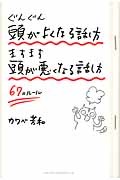 ぐんぐん
頭がよくなる話し方
ますます
頭が悪くなる話し方
67のルール